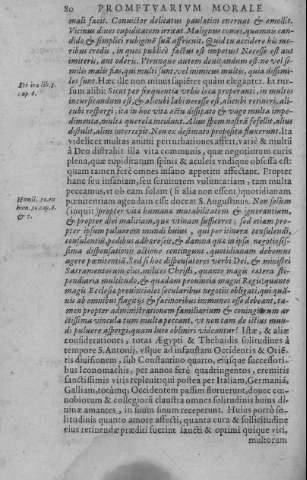 80 PROMPTVARIVM MORALE
mali fueit. Conuictor delicatus paulatim eneruat & emollit.
Vicinus diues cupiditatem irritat. Malignus comes, quamuis can-
dido & simplici rubiginē suā affricuit. Quid tu accidere his mo-
ribus credis, in quos publicè factus est impetus? Necesse est aut
imiteris, aut oderis. Vtrunque autem deuitandum est ne vel si-
milis malis fias, qui multi sunt, vel inimicus multis, quia dissimi-
les sunt. Hæc ille non minùs sapiēter quàm eleganter. Ita rur-
sum alibi: Sicut per frequentia vrbis loca properanti, in multos
incursitandum est, & alicubi labi necesse est, alicubi retineri, ali-
cubi respergi; ita in hoc vitæ actu dissipato & vago multa impe-
dimenta, multæ querelæ incidunt. Alius spem nostrā fefellit, alius
distulit, alius intercepit. Non ex destinato proposita fluxerunt. Ita
videlicet multas animi perturbationes affert, variè & multū
à Deo distrahit illa vita communis, quæ negotiorum curis
plena, quæ cupiditatum spinis & aculeis vndique obsessa est:
quam tamen ferè omnes insano appetitu affectant. Propter
hanc seu insaniam, seu seruitutem voluntariam, tam multa
peccamus, vt ob eam solam (si alia non essent) quotidianam
pœnitentiam agendam esse doceat S. Augustinus. Non solùm
(inquit) propter vitæ humanæ mutabilitatem & ignorantiam,
& propter diei malitiam, quæ vtinam sufficeret; sed etiam prop-
ter ipsum puluerem mundi huius, qui per itinera consulendi,
consulentiū, pedibus adhæresit, & damna quæ in ipsis negotiosis-
simis dispensationis actione contingunt, quotidianam debemus
agere pœnitentiā. Sed si hæc dispensatores verbi Dei, & ministri
Sacramentorum eius, milites Christi, quanto magis cætera sti-
pendiaria multitudo, & quædam prouincia magni Regis; quanto
magis Ecclesiæ prouinciales sæcularibus negotiis obligati, qui quā-
uis ab omnibus flagitiis & facinoribus immunes esse debeant, ta-
men propter administrationem familiarium & coniugiorum ar-
ctissima vincula tam multa peccant, vt non tam de istius mun-
di puluere aspergi, quàm luto obliniri videantur! Istæ, & aliæ
considerationes, totas Ægypti & Thebaidis solitudines à
tempore S. Antonij, vsque ad infaustum Occidentis & Oriē-
tis diuisionem, sub Constantino quarto, eiusque successori-
bus Iconomachis, per annos ferè quadringentos, eremitis
sanctissimis viris repleuit: qui postea per Italiam, Germaniā,
Galliam, totūmq; Occidentem passim floruerunt, donec cœ-
nobiorum & collegiorū claustra omnes solitudinis huius di-
uinæ amantes, in suum sinum receperunt. Huius porrò so-
litudinis quanto amore affecti, quanta cura & sollicitudine
eius retinendæ præditi fuerint sancti & optimi quique viri,
multorum
De ira lib. 3.
cap. 8.
Homil. 50. ex
hom. 50. cap. 8.
& 9.